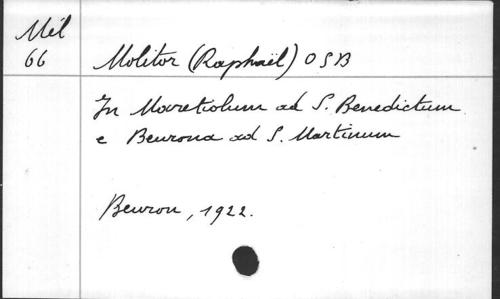 Mél
66
Molitor (Raphaël) OSB
In Maretiolum ad S. Benedictum
e Beurona ad S. Martinum
Beuron, 1922.